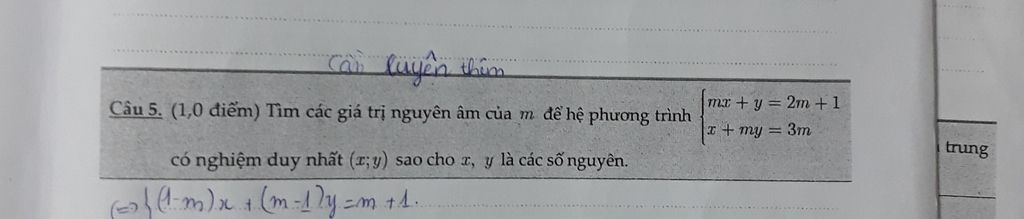 Cần luyện thêm
Câu 5. (1,0 điểm) Tìm các giá trị nguyên âm của m để hệ phương trình { mx + y = 2m + 1
x + my = 3m
có nghiệm duy nhất (x; y) sao cho x, y là các số nguyên.
(=> { (1-m)x + (m-1)y = m + 1.
trung